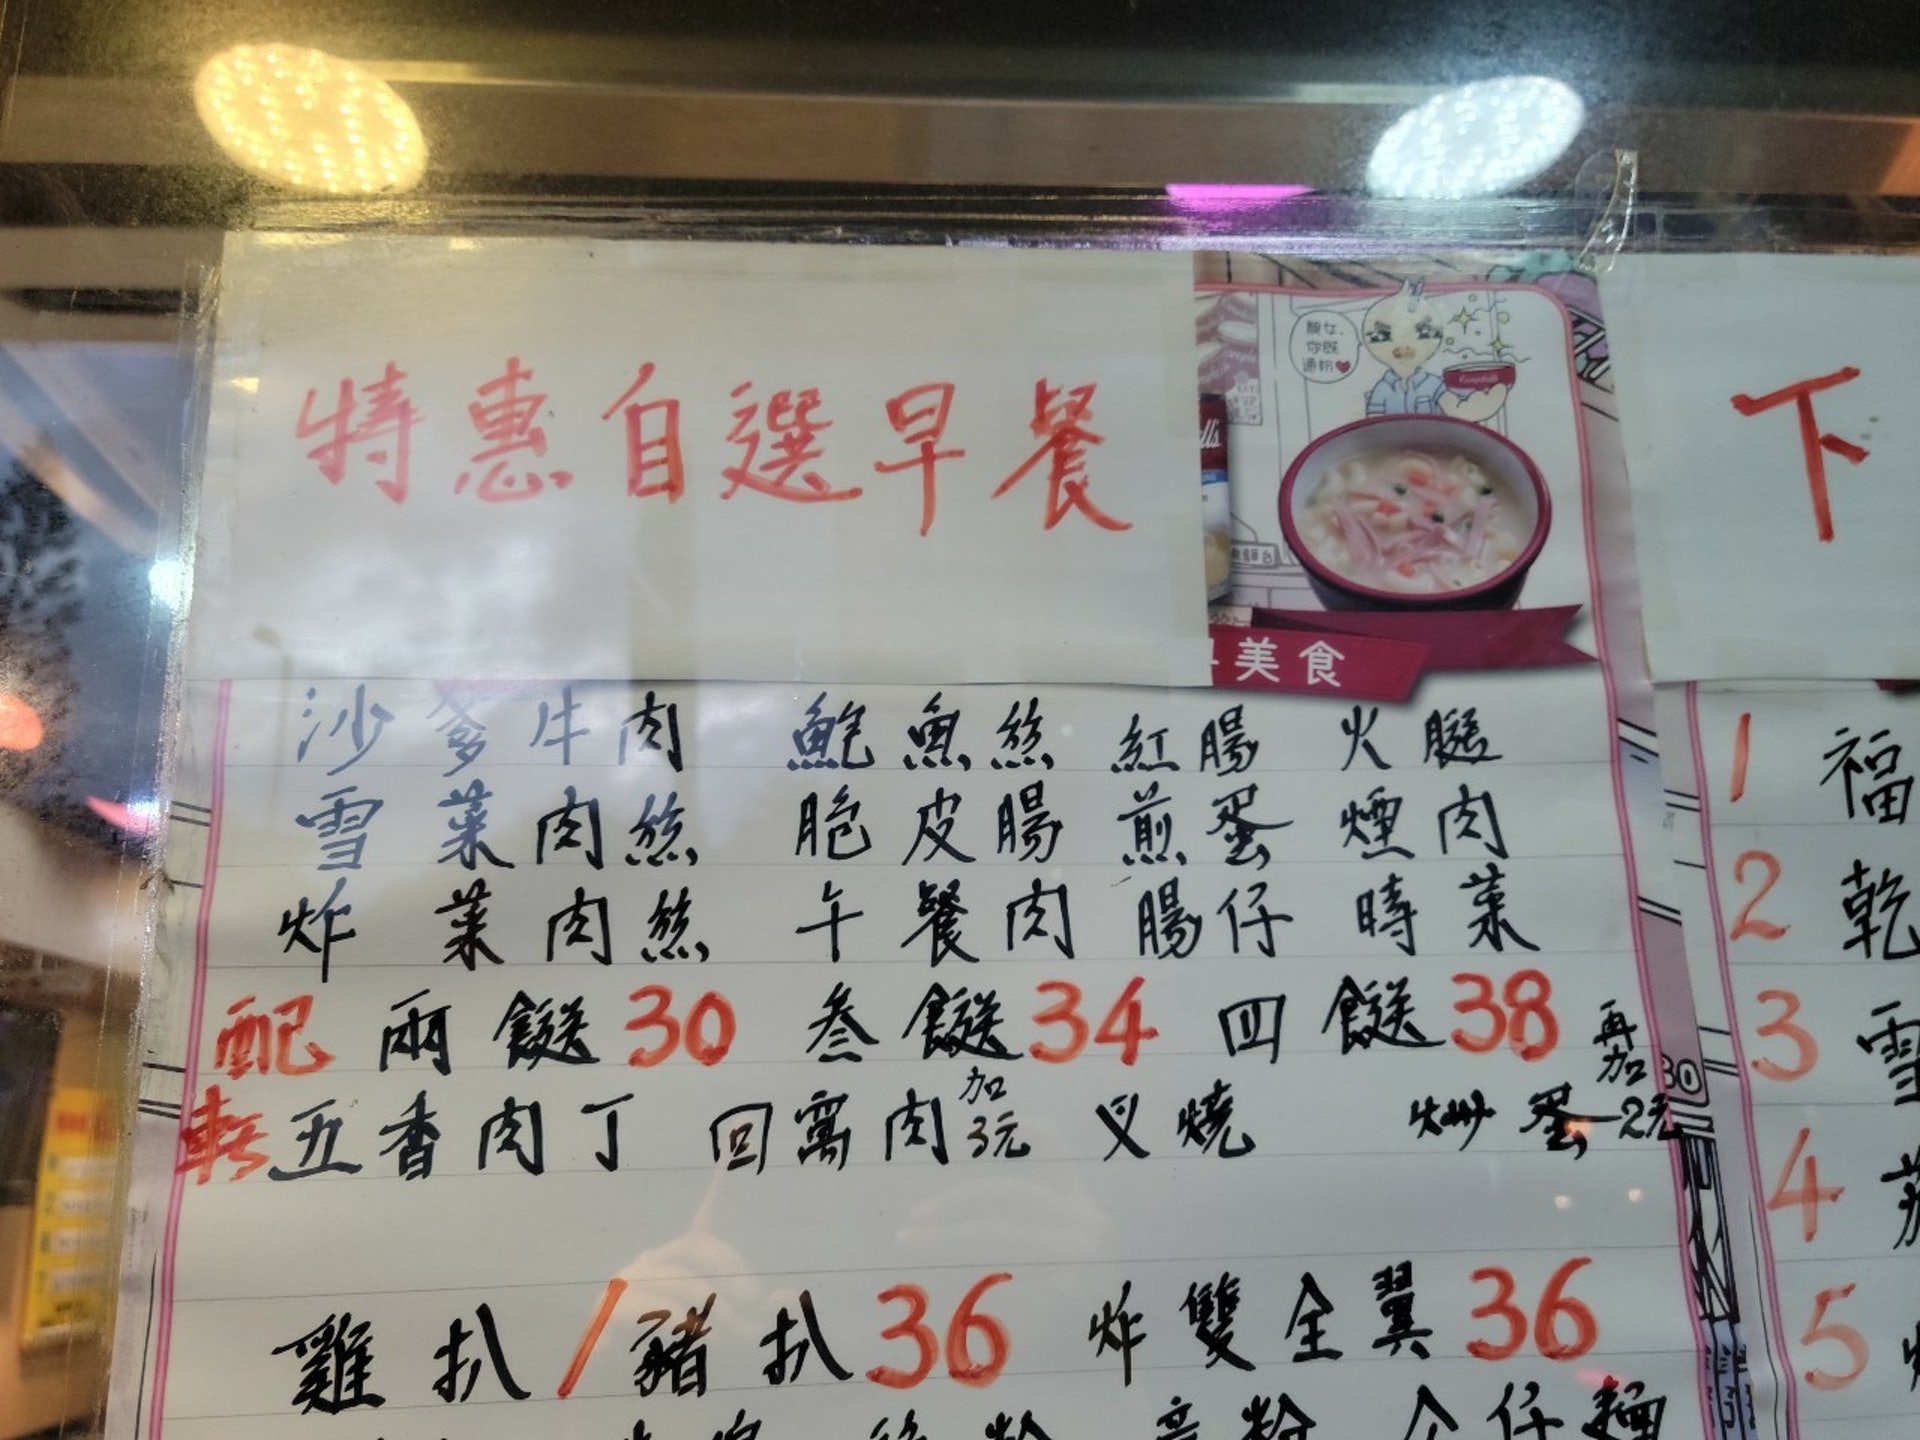 特惠自選早餐
靚女,
你既
通粉
美食
沙爹牛肉 鮑魚絲 紅腸 火腿
雪菜肉絲 脆皮腸 煎蛋 煙肉
炸菜肉絲 午餐肉 腸仔 時菜
配 兩餸30 叁餸34 四餸38
再加
轉 五香肉丁 回窩肉 加3元 叉燒 炒蛋 2元
雞扒/豬扒36 炸雙全翼36
下
1 福
2 乾
3 雪
4
5